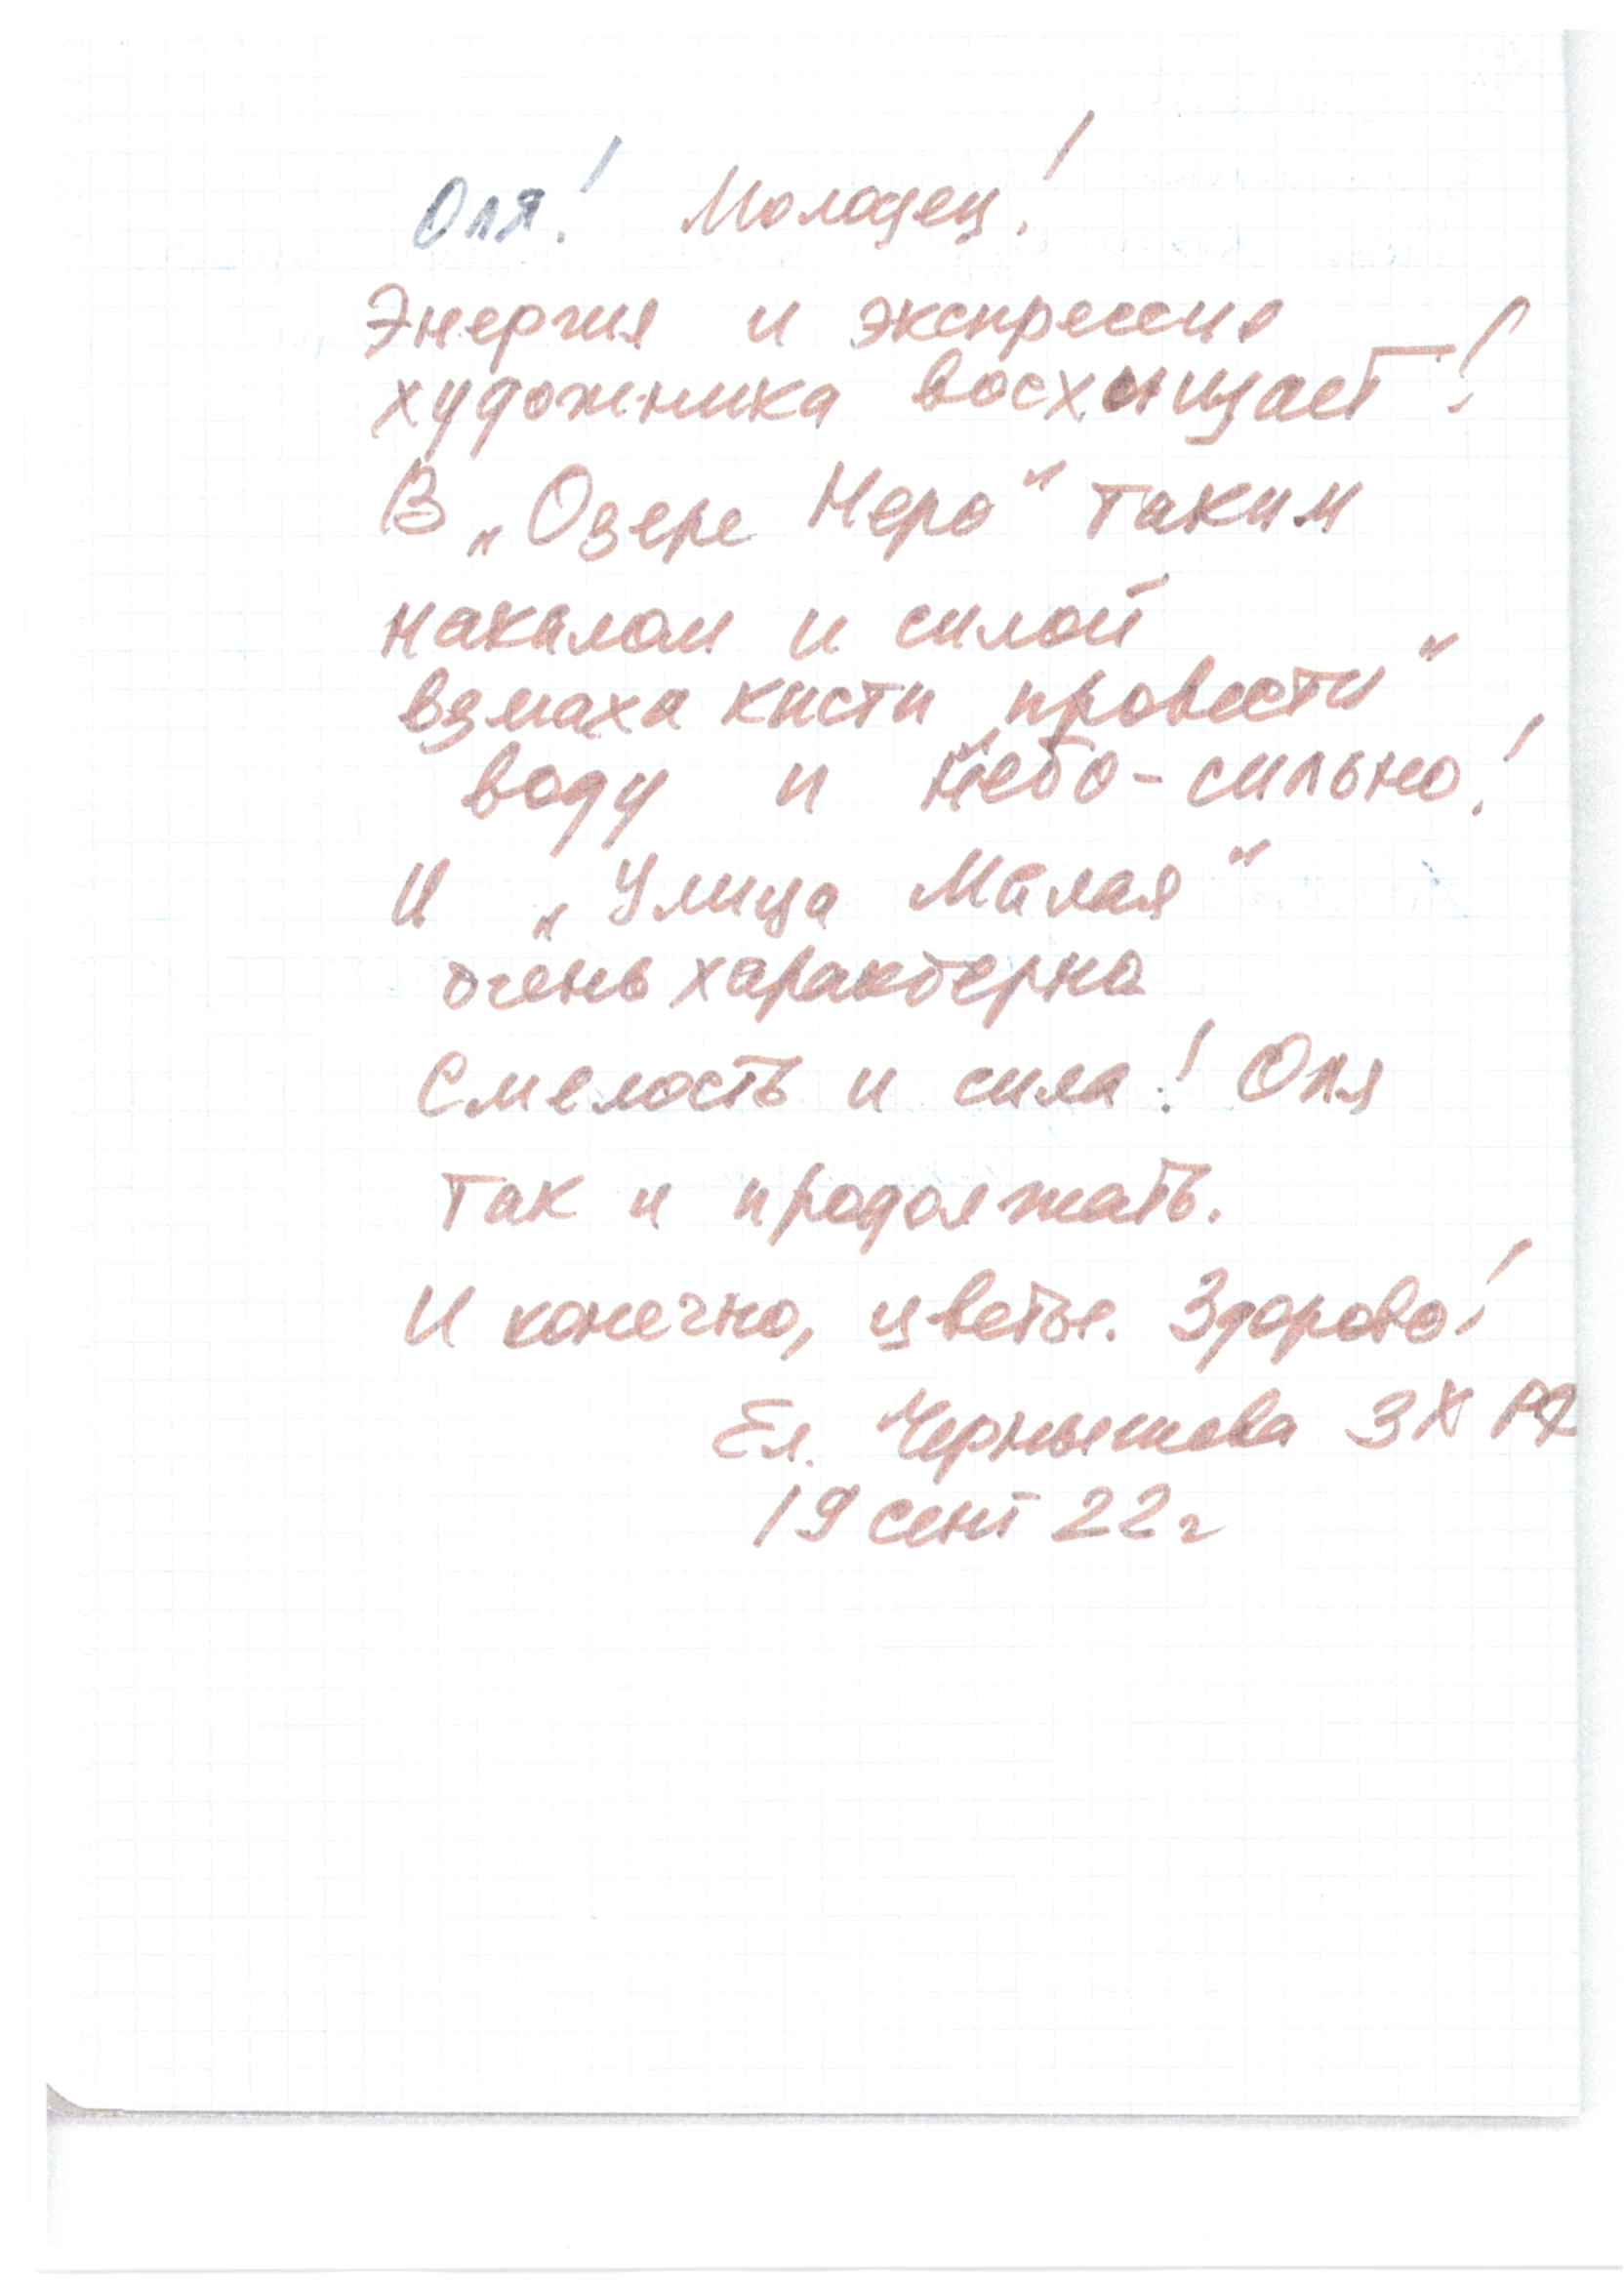 Оля! Молодец!
Энергия и экспрессия
художника восхищает!
В „Озере Неро“ таким
накалом и силой
взмаха кисти „провести“
воду и небо - сильно!
И „Улица Малая“
очень характерна
Смелость и сила! Оля
так и продолжать.
И конечно, цветы. Здорово!
Ел. Чернышова ЗХ РФ
19 сент 22 г